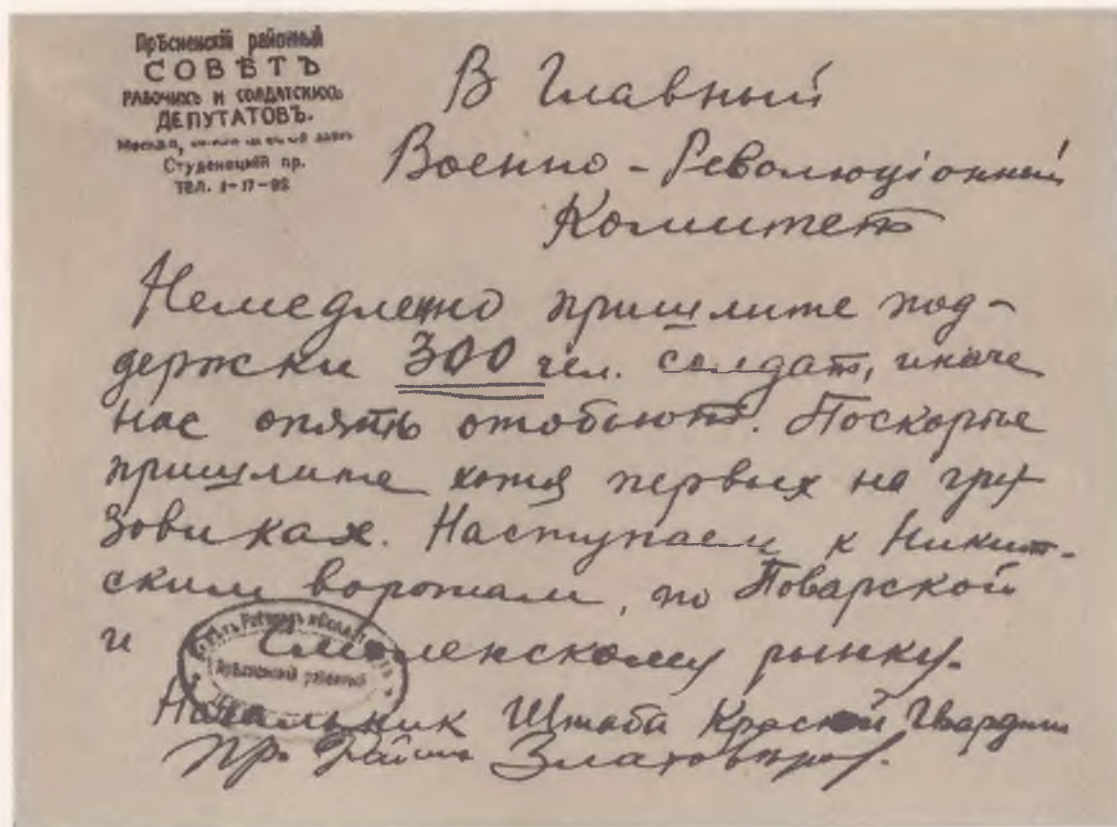 Прѣсненскій районный
СОВѢТЪ
РАБОЧИХЪ И СОЛДАТСКИХЪ
ДЕПУТАТОВЪ.
Москва,
Студенецкій пр.
ТЕЛ. 1-17-92
В Главный
Военно-Революціонный
Комитет
Немедленно пришлите под-
держки 300 чел. солдат, иначе
нас опять отобьют. Поскорѣе
пришлите хотя первых на гру-
зовиках. Наступаем к Никит-
ским воротам, по Поварской
и Смоленскому рынку.
Прѣсненскій районный
Начальник Штаба Красной Гвардии
Пр. Района Златоверов.